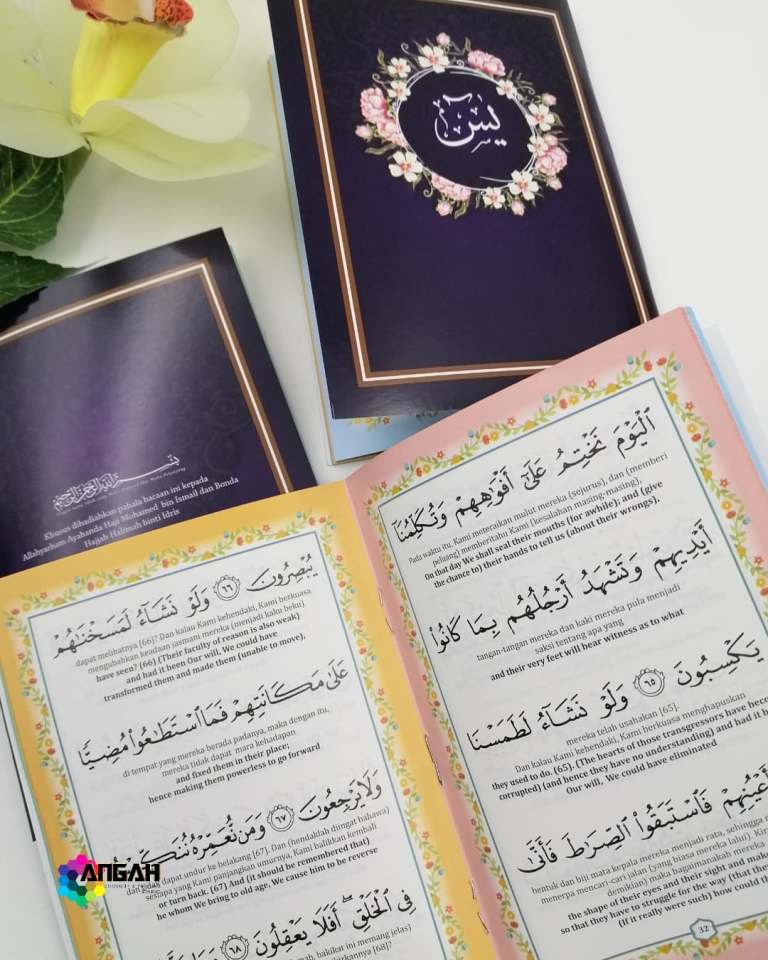 يس
بسم الله الرحمن الرحيم
Khusus dihadiahkan pahala bacaan ini kepada
Allahyarham Ayahanda Haji Mohamed bin Ismail dan Bonda
Hajjah Halimah binti Idris
ٱلْيَوْمَ نَخْتِمُ عَلَىٰٓ أَفْوَٰهِهِمْ وَتُكَلِّمُنَآ
Pada waktu itu, Kami meteraikan mulut mereka (sejurus), dan (memberi
peluang) memberitahu Kami (kesalahan masing-masing),
On that day We shall seal their mouths (for awhile); and (give
the chance to) their hands to tell us (about their wrongs),
أَيْدِيهِمْ وَتَشْهَدُ أَرْجُلُهُم بِمَا كَانُوا۟
tangan-tangan mereka dan kaki mereka pula menjadi
saksi tentang apa yang
and their very feet will bear witness as to what
يَكْسِبُونَ ٦٥ وَلَوْ نَشَآءُ لَطَمَسْنَا
mereka telah usahakan [65].
Dan kalau Kami kehendaki, Kami berkuasa menghapuskan
they used to do. (65). (The hearts of those transgressors have beco
corrupted) (and hence they have no understanding) and had it b
Our will, We could have eliminated
أَعْيُنِهِمْ فَٱسْتَبَقُوا۟ ٱلصِّرَٰطَ فَأَنَّىٰ
bentuk dan biji mata kepala mereka menjadi rata, sehingga m
menerpa mencari-cari jalan (yang biasa mereka lalui). Kir
demikian) maka bagaimanakah mereka
the shape of their eyes and their sight and make
so that they have to struggle for the way (that the
(If it really were such) how could th
32
يُبْصِرُونَ ٦٦ وَلَوْ نَشَآءُ لَمَسَخْنَٰهُمْ
dapat melihatnya [66]? Dan kalau Kami kehendaki, Kami berkuasa
mengubahkan keadaan jasmani mereka (menjadi kaku beku)
have seen? (66) (Their faculty of reason is also weak)
and had it been Our will, We could have
transformed them and made them (unable to move),
عَلَىٰ مَكَانَتِهِمْ فَمَا ٱسْتَطَٰعُوا۟ مُضِيًّا
di tempat yang mereka berada padanya, maka dengan itu,
mereka tidak dapat mara kehadapan
and fixed them in their place;
hence making them powerless to go forward
وَلَا يَرْجِعُونَ ٦٧ وَمَن نُّعَمِّرْهُ نُنَكِّ
dan dapat undur ke belakang [67]. Dan (hendaklah diingat bahawa)
sesiapa yang Kami panjangkan umurnya, Kami balikkan kembali
or turn back. (67) And (it should be remembered that)
he whom We bring to old age. We cause him to be reverse
فِى ٱلْخَلْقِ ۖ أَفَلَا يَعْقِلُونَ ٦٨
hakikat ini memang jelas)
ANGAH